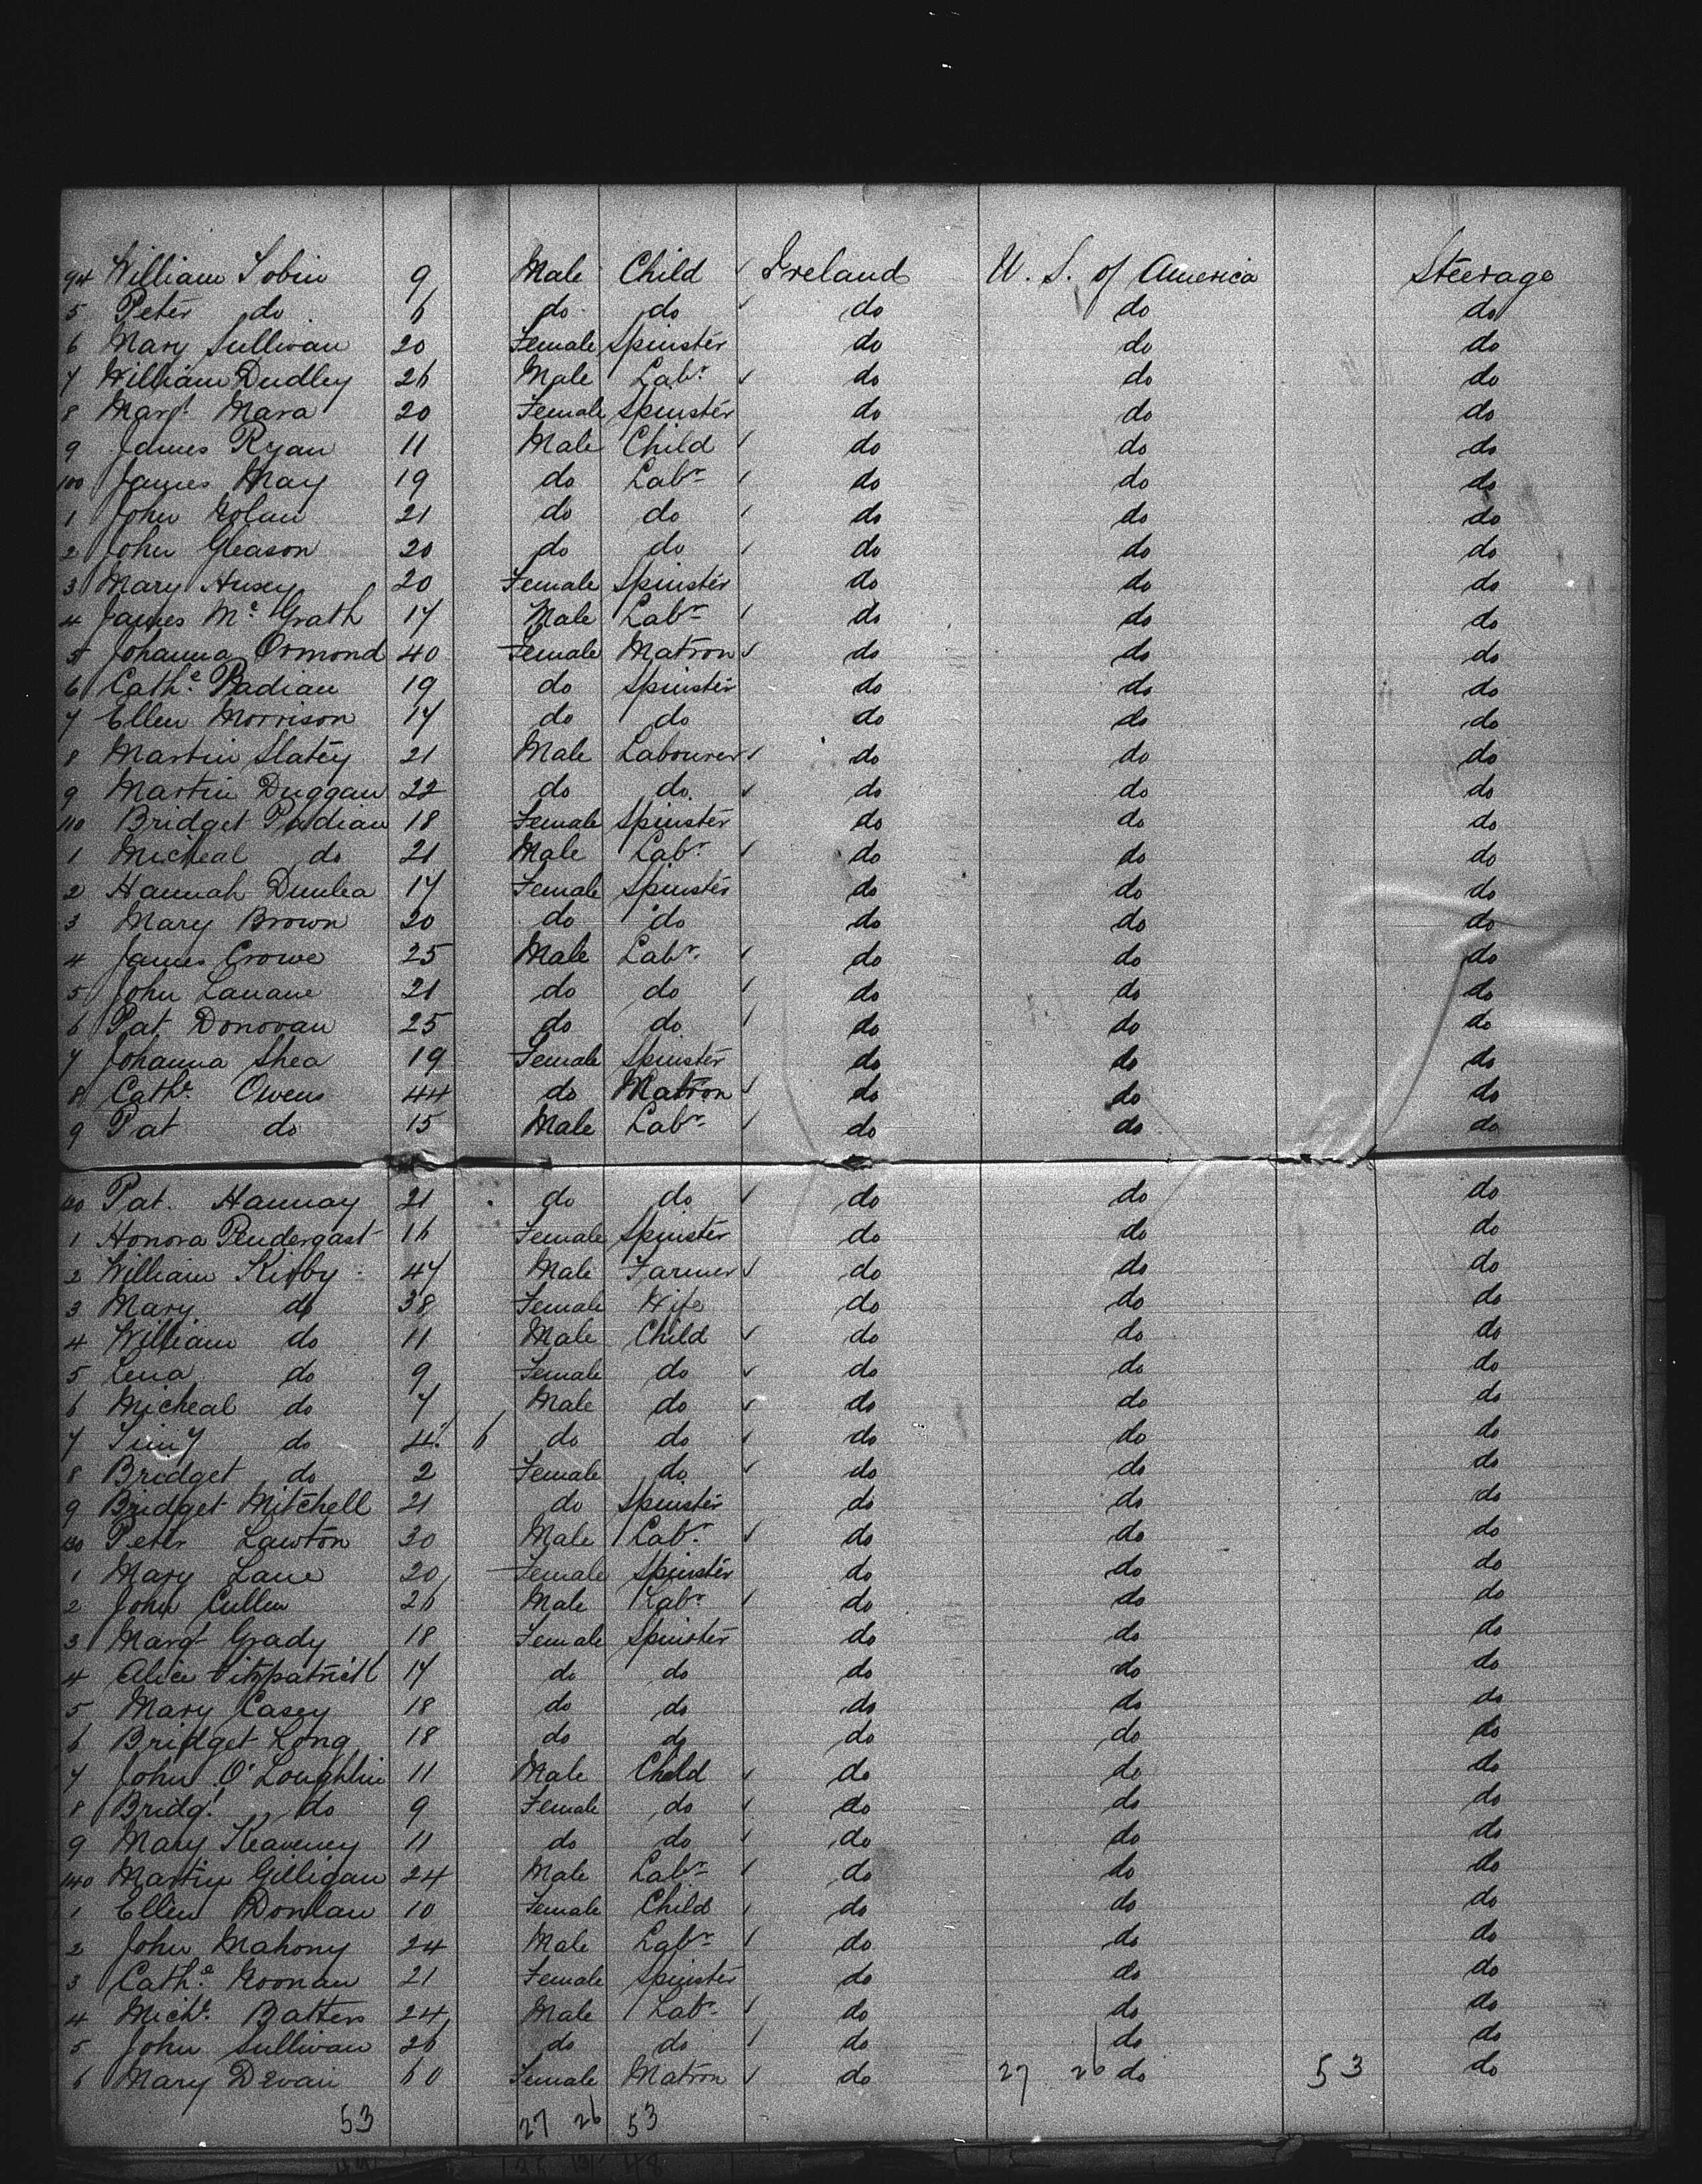 94 William Tobin 9 Male Child Ireland U. S. of America Steerage
5 Peter do 6 do do do do do
6 Mary Sullivan 20 Female Spinster do do do
7 William Dudley 26 Male Labr. do do do
8 Margt. Mara 20 Female Spinster do do do
9 James Ryan 11 Male Child do do do
100 James May 19 do Labr do do do
1 John Nolan 21 do do do do do
2 John Gleason 20 do do do do do
3 Mary Husey 20 Female Spinster do do do
4 James Mc Grath 17 Male Labr do do do
5 Johanna Ormond 40 Female Matron do do do
6 Cathe. Padian 19 do Spinster do do do
7 Ellen Morrison 17 do do do do do
8 Martin Slatey 21 Male Labourer do do do
9 Martin Duggan 22 do do do do do
110 Bridget Padian 18 Female Spinster do do do
1 Micheal do 21 Male Labr. do do do
2 Hannah Dunlea 17 Female Spinster do do do
3 Mary Brown 20 do do do do do
4 James Crowe 25 Male Labr. do do do
5 John Lanane 21 do do do do do
6 Pat Donovan 25 do do do do do
7 Johanna Shea 19 Female Spinster do do do
8 Cathe. Owens 44 do Matron do do do
9 Pat do 15 Male Labr do do do
120 Pat. Hannay 21 do do do do do
1 Honora Pendergast 16 Female Spinster do do do
2 William Kirby 47 Male Farmer do do do
3 Mary do 38 Female Wife do do do
4 William do 11 Male Child do do do
5 Lena do 9 Female do do do do
6 Micheal do 7 Male do do do do
7 Timy do 4 6 do do do do do
8 Bridget do 2 Female do do do do
9 Bridget Mitchell 21 do Spinster do do do
130 Peter Lawton 20 Male Labr. do do do
1 Mary Lane 20 Female Spinster do do do
2 John Cullen 26 Male Labr do do do
3 Margt Grady 18 Female Spinster do do do
4 Alice Fitzpatrick 17 do do do do do
5 Mary Casey 18 do do do do do
6 Bridget Long 18 do do do do do
7 John O'Loughlin 11 Male Child do do do
8 Bridgt. do 9 Female do do do do
9 Mary Keaveney 11 do do do do do
140 Martin Gilligan 24 Male Labr do do do
1 Ellen Donlan 10 Female Child do do do
2 John Mahony 24 Male Labr do do do
3 Cathe. Noonan 21 Female Spinster do do do
4 Michl. Batters 24 Male Labr do do do
5 John Sullivan 26 do do do do do
6 Mary Devain 60 Female Matron do 27 26 do 53 do
53 27 26 53